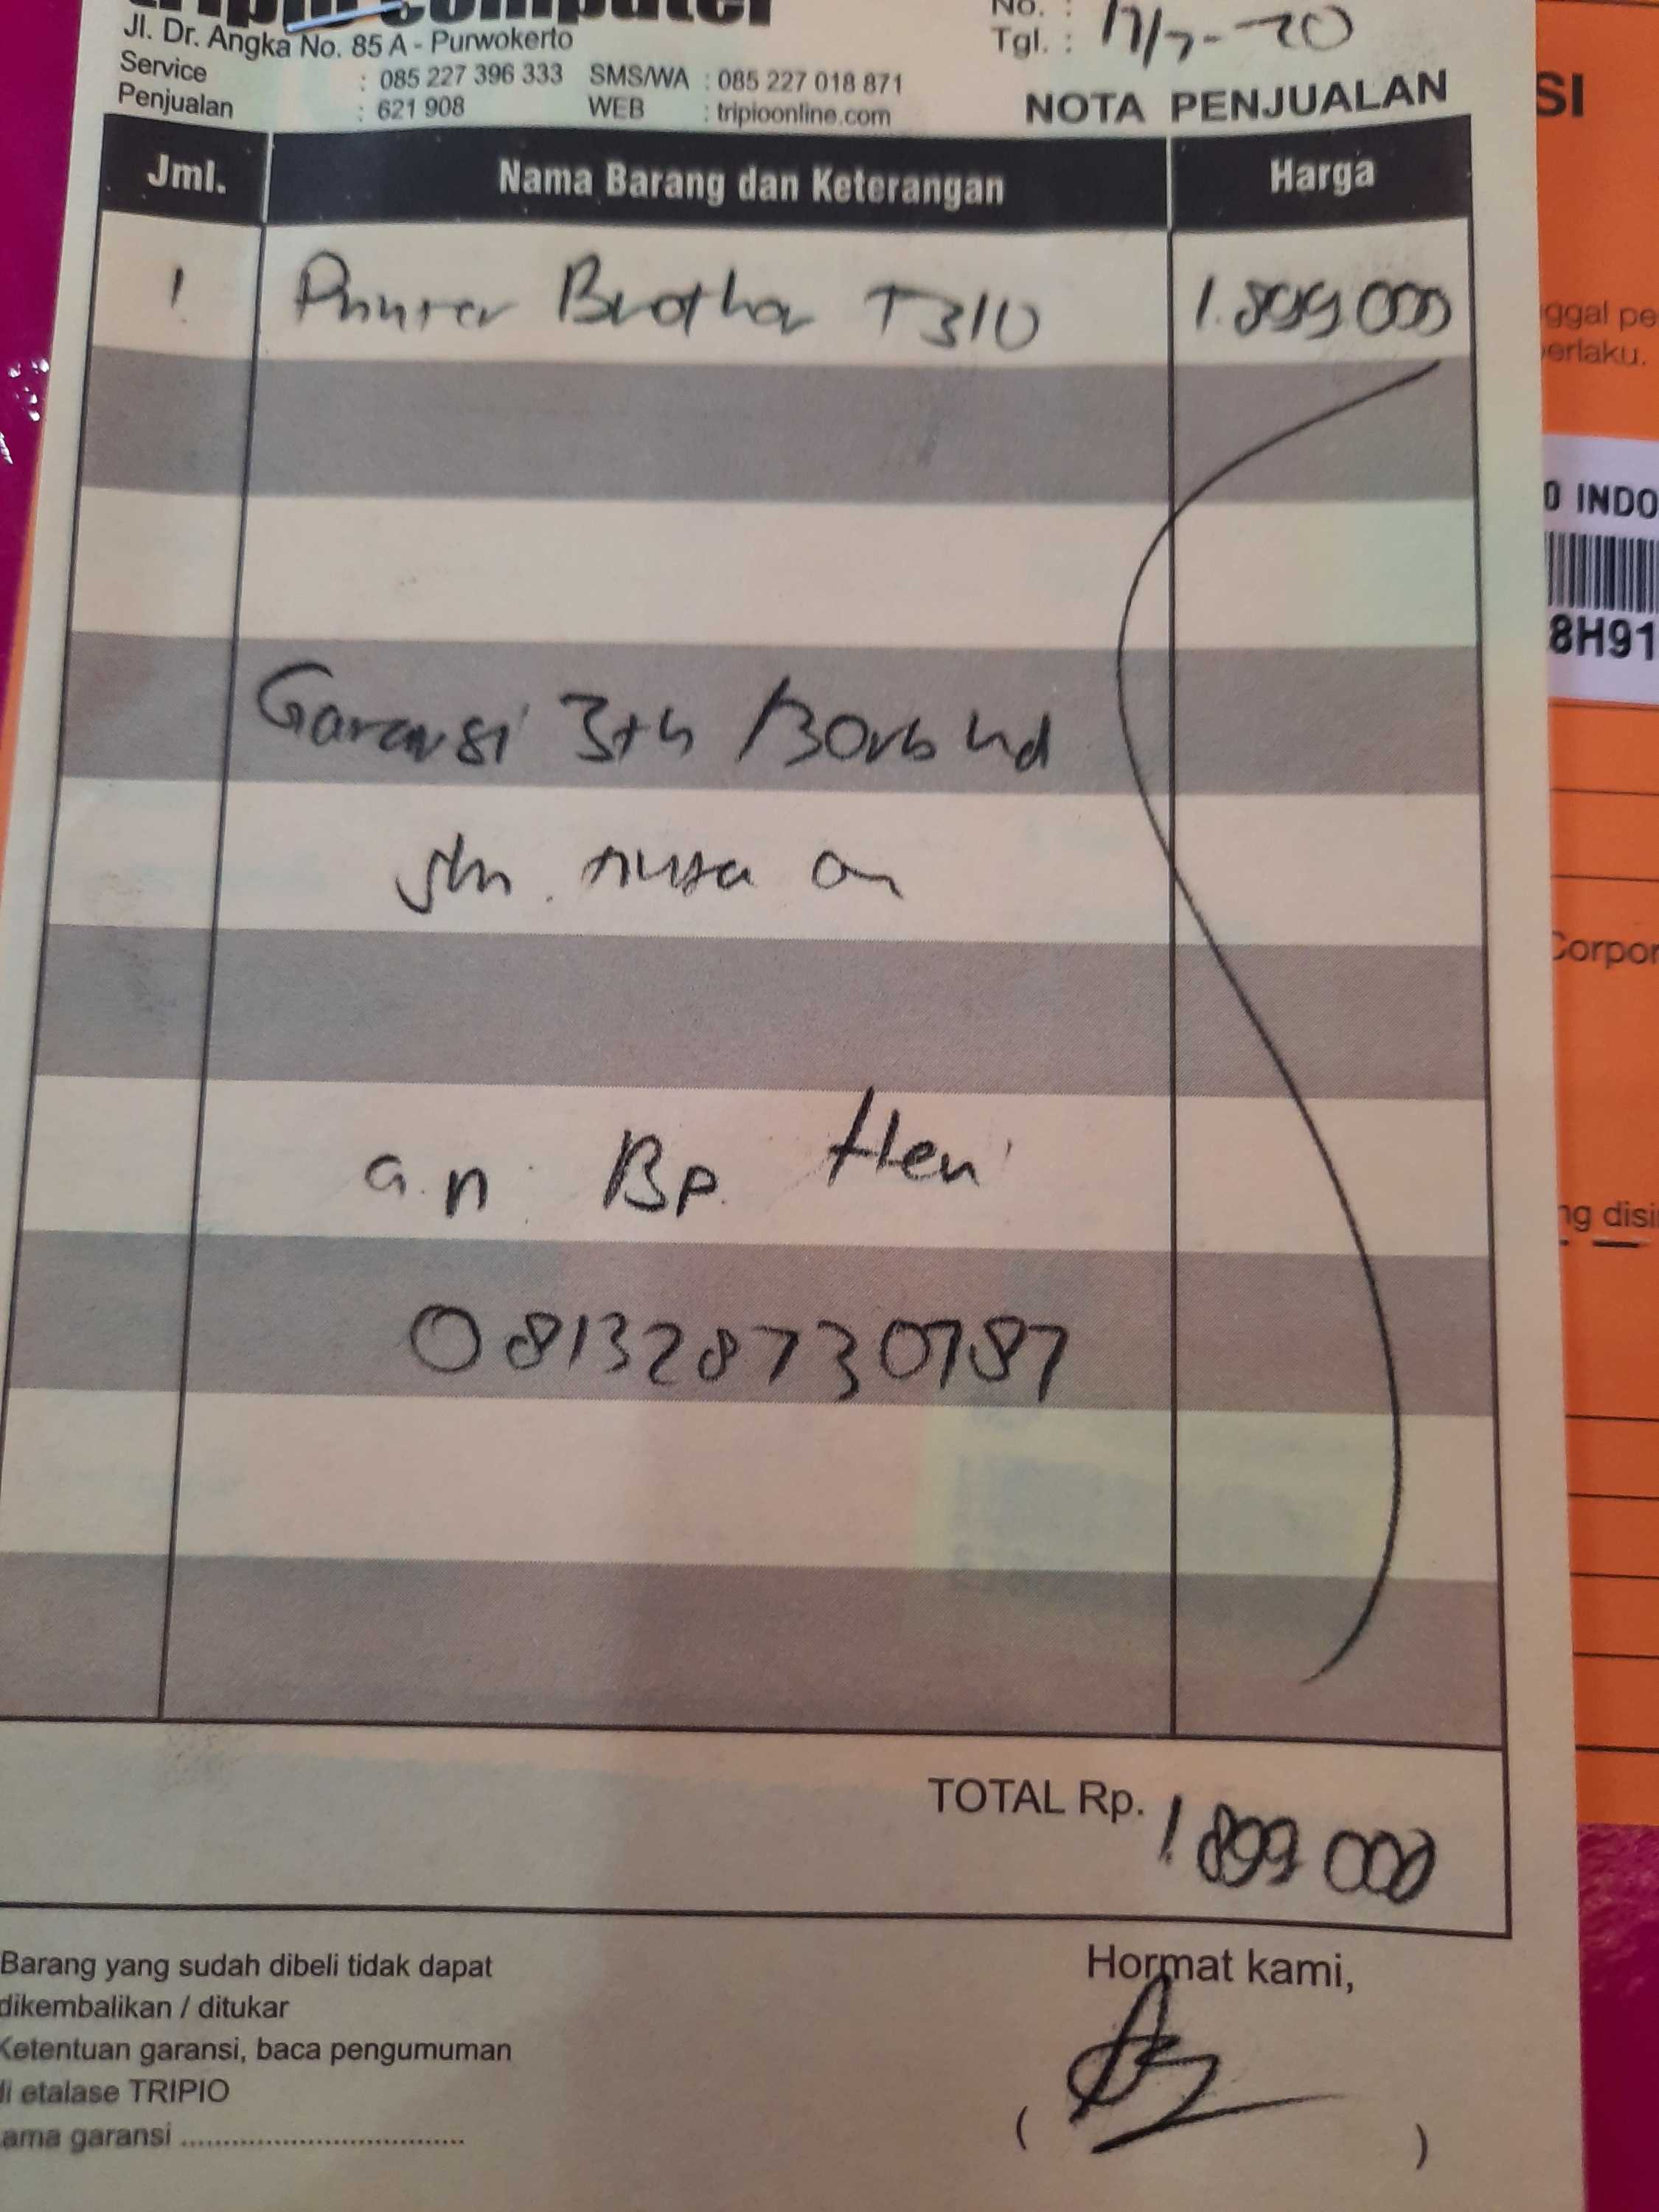 tripio computer
Jl. Dr. Angka No. 85 A - Purwokerto
Service : 085 227 396 333 SMS/WA : 085 227 018 871
Penjualan : 621 908 WEB : tripioonline.com
No. :
Tgl. : 17/7-20
NOTA PENJUALAN
Jml. Nama Barang dan Keterangan Harga
1 Printer Brother T310 1.899.000
Garansi 3th
a.n. Bp. Heri
081328730787
TOTAL Rp. 1.899.000
Barang yang sudah dibeli tidak dapat
dikembalikan / ditukar
Ketentuan garansi, baca pengumuman
di etalase TRIPIO
ama garansi
Hormat kami,
( )
SI
ggal pe
erlaku.
0 INDO
8H91
Corpor
ng disi